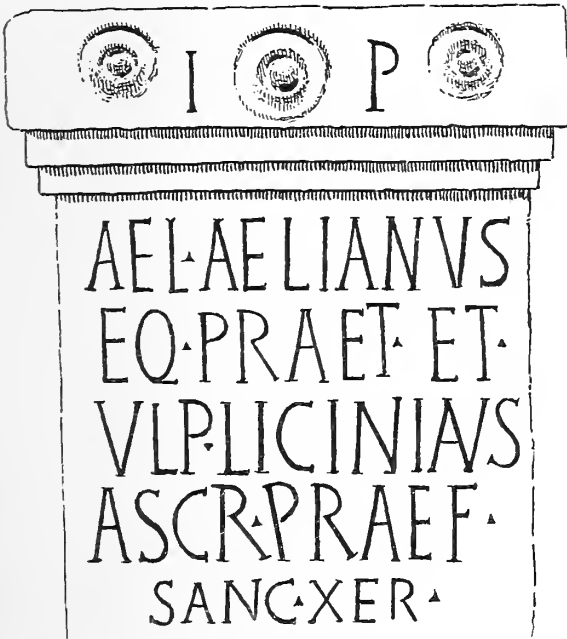 I P
AEL·AELIANVS
EQ·PRAET· ET·
VLP·LICINIANVS
ASCR·PRAEF·
SANC·XER·